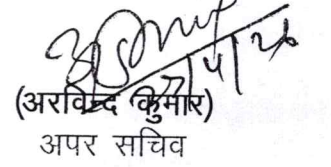 (अरविन्द कुमार)
अपर सचिव